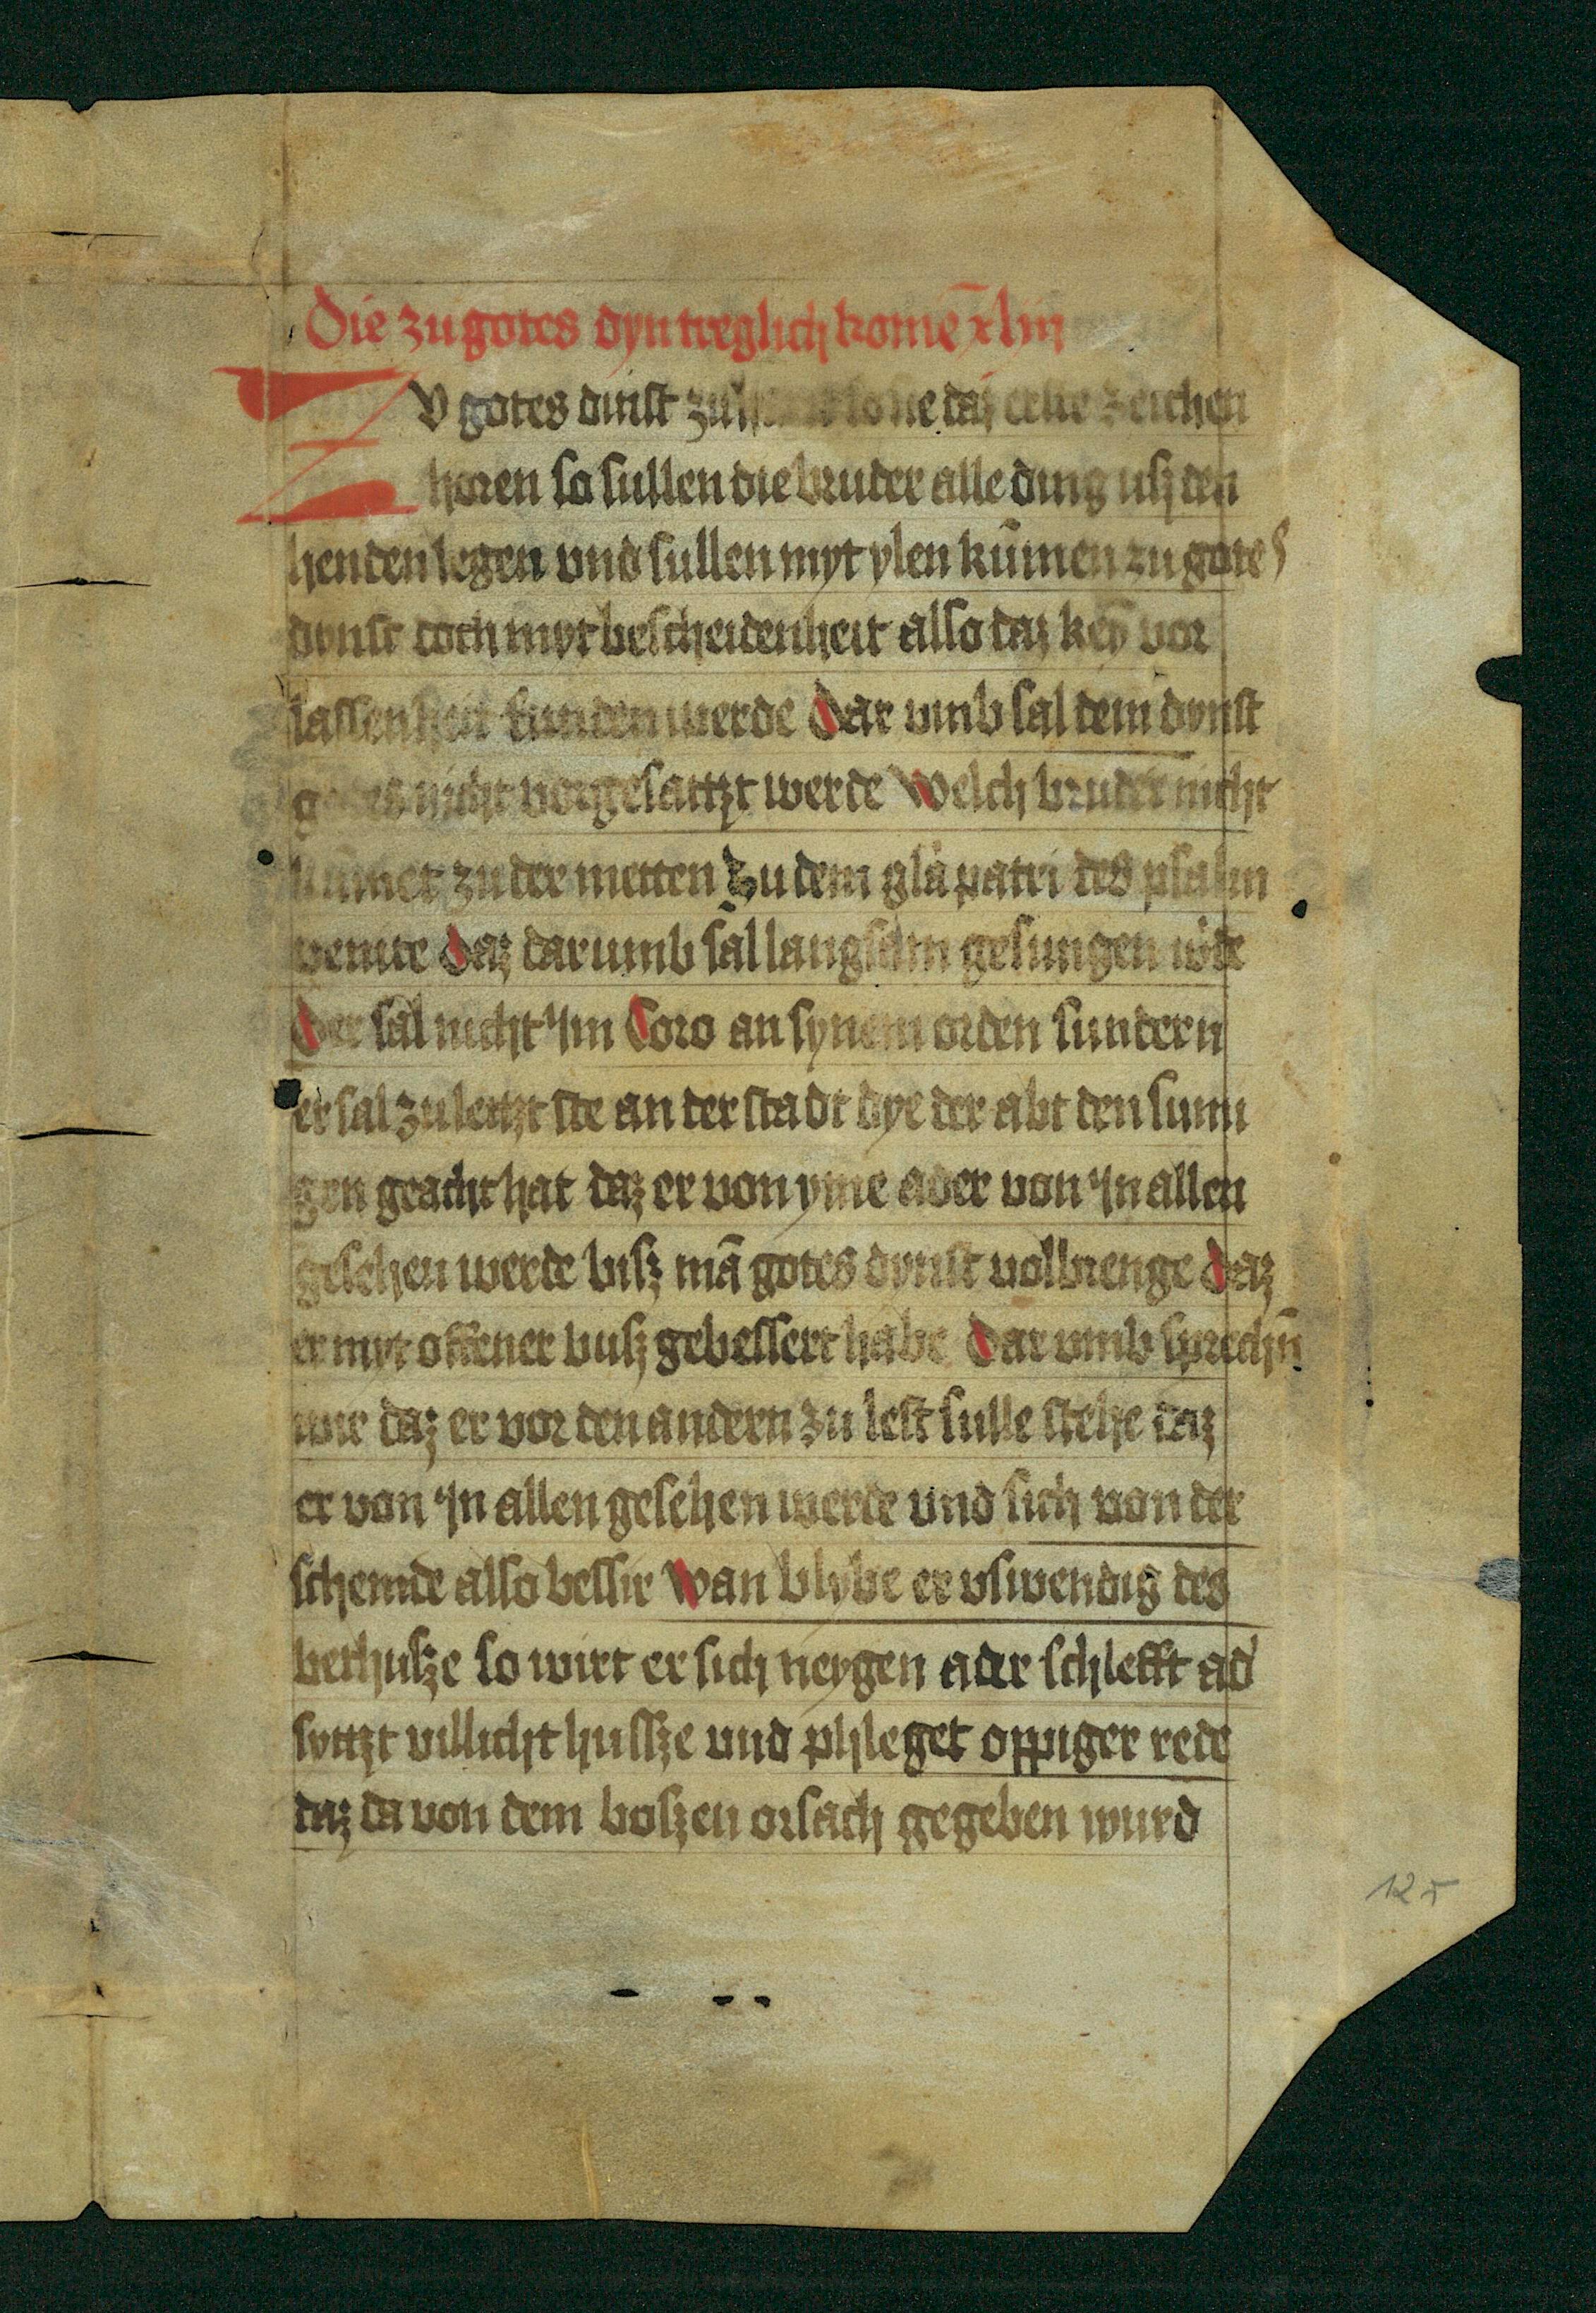 Die zu gotes dyn treglich komē xliii
ZV gotes dinst zu so sie daz erste zeichen
horen so sullen die bruder alle ding usz den
henden legen vnd sullen myt ylen kūmen zu gotes
dynst doch myt bescheidenheit also daz key vor
lassenheit funden werde Dar vmb sal dem dynst
gotes nicht vorgesattzt werde Welch bruder nicht
kūmet zu der metten Zu dem gla patri des psalm
venite Daz dar umb sal langsam gesungen w'de
Der sal nicht ym Coro an synem orden sundern
er sal zuletzt ste an der stadt dye der abt den sumi
gen geacht hat daz er von yme ader von yn allen
gesehen werde bisz mā gotes dynst volbrenge Daz
er myt offener busz gebessert habe Dar vmb sprechn̄
wir daz er vor den andern zu lest sulle stehe daz
er von yn allen gesehen werde vnd sich von der
schemde also bessir Wan blybe er vswendig des
bethusze so wirt er sich neygen ader schlefft ad'
syttzt villicht hussze vnd phleget oppiger rede
daz da von dem boszen orsach gegeben wurd
125